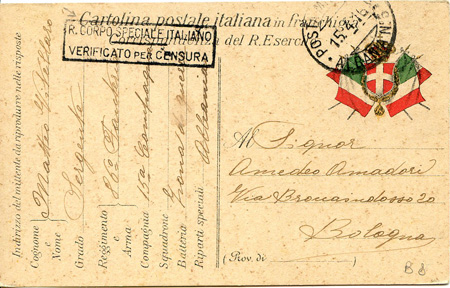 Cartolina postale italiana in franchigia
Corrispondenza del R. Esercito
R. CORPO SPECIALE ITALIANO
VERIFICATO PER CENSURA
POSTA
15.4.16
ALBANIA N. 8
Indirizzo del mittente da riprodurre nelle risposte
Cognome Matteo
e
Nome
Grado Sergente
Reggimento 86º Fanteria
e
Arma
Compagnia 15a Compagnia
Squadrone
Batteria
Riparti speciali Albania
Al Signor
Amedeo Amadori
Via Brocaindosso 20
Bologna
(Prov. di )
B 8